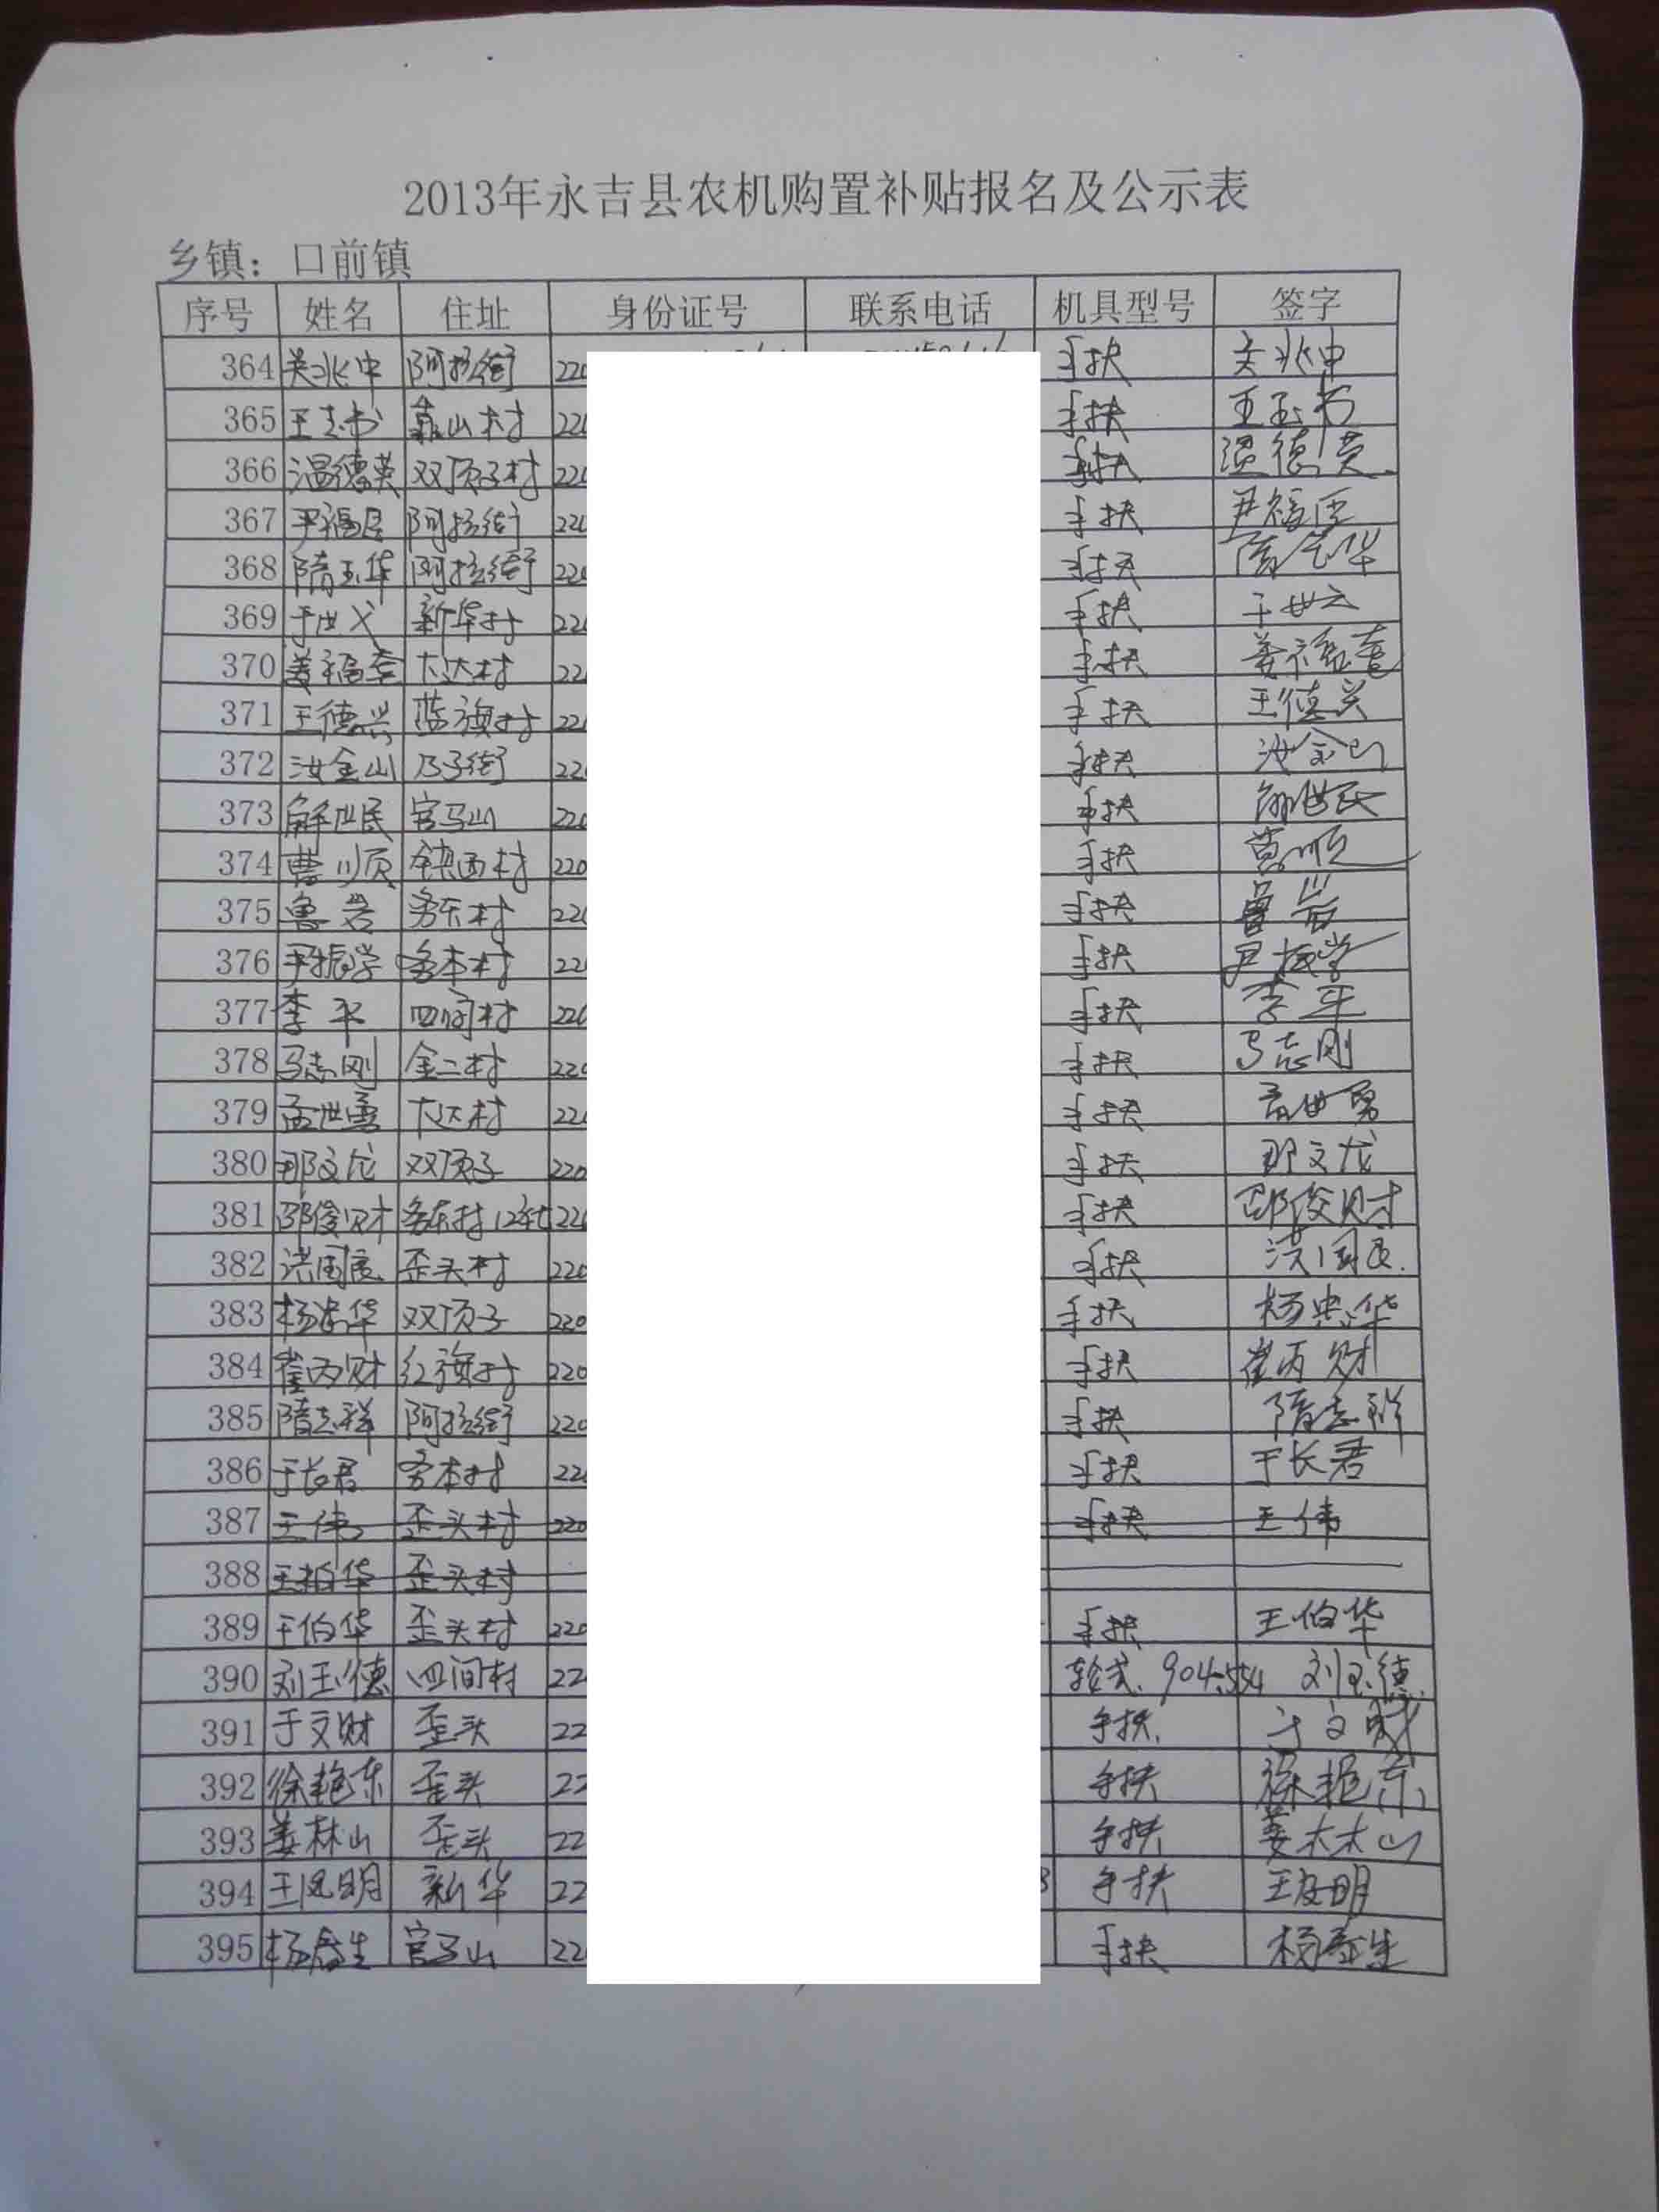 2013年永吉县农机购置补贴报名及公示表
乡镇： 口前镇
序号 姓名 住址 身份证号 联系电话 机具型号 签字
364 关兆中 阿拉街 220 手扶 关兆中
365 王玉书 靠山村 220 手扶 王玉书
366 温德英 双顶子村 220 手扶 温德英
367 尹福臣 阿拉街 220 手扶 尹福臣
368 隋玉华 阿拉街 220 手扶 隋玉华
369 于世 新华村 220 手扶 于世
370 姜福奎 大达村 22 手扶 姜福奎
371 王德兴 蓝旗村 220 手扶 王德兴
372 汝金山 乃子街 22 手扶 汝金山
373 解世民 官马山 220 手扶 解世民
374 曹顺 镇西村 220 手扶 曹顺
375 鲁岩 务本村 220 手扶 鲁岩
376 尹振学 务本村 22 手扶 尹振学
377 李平 四间村 220 手扶 李平
378 马志刚 金二村 220 手扶 马志刚
379 孟世勇 大达村 220 手扶 孟世勇
380 那文龙 双顶子 220 手扶 那文龙
381 邵俊财 务本村12社 220 手扶 邵俊财
382 洪国良 歪头村 220 手扶 洪国良
383 杨忠华 双顶子 220 手扶 杨忠华
384 崔丙财 红旗村 220 手扶 崔丙财
385 隋志祥 阿拉街 220 手扶 隋志祥
386 于长君 务本村 220 手扶 于长君
387 王伟 歪头村 220 手扶 王伟
388 王柏华 歪头村
389 王伯华 歪头村 220 手扶 王伯华
390 刘玉德 四间村 22 轮式.904.554 刘玉德
391 于文财 歪头 22 手扶. 于文财
392 徐艳东 歪头 22 手扶 徐艳东
393 姜林山 歪头 22 手扶 姜林山
394 王凤明 新华 22 3 手扶 王凤明
395 杨春生 官马山 22 手扶 杨春生